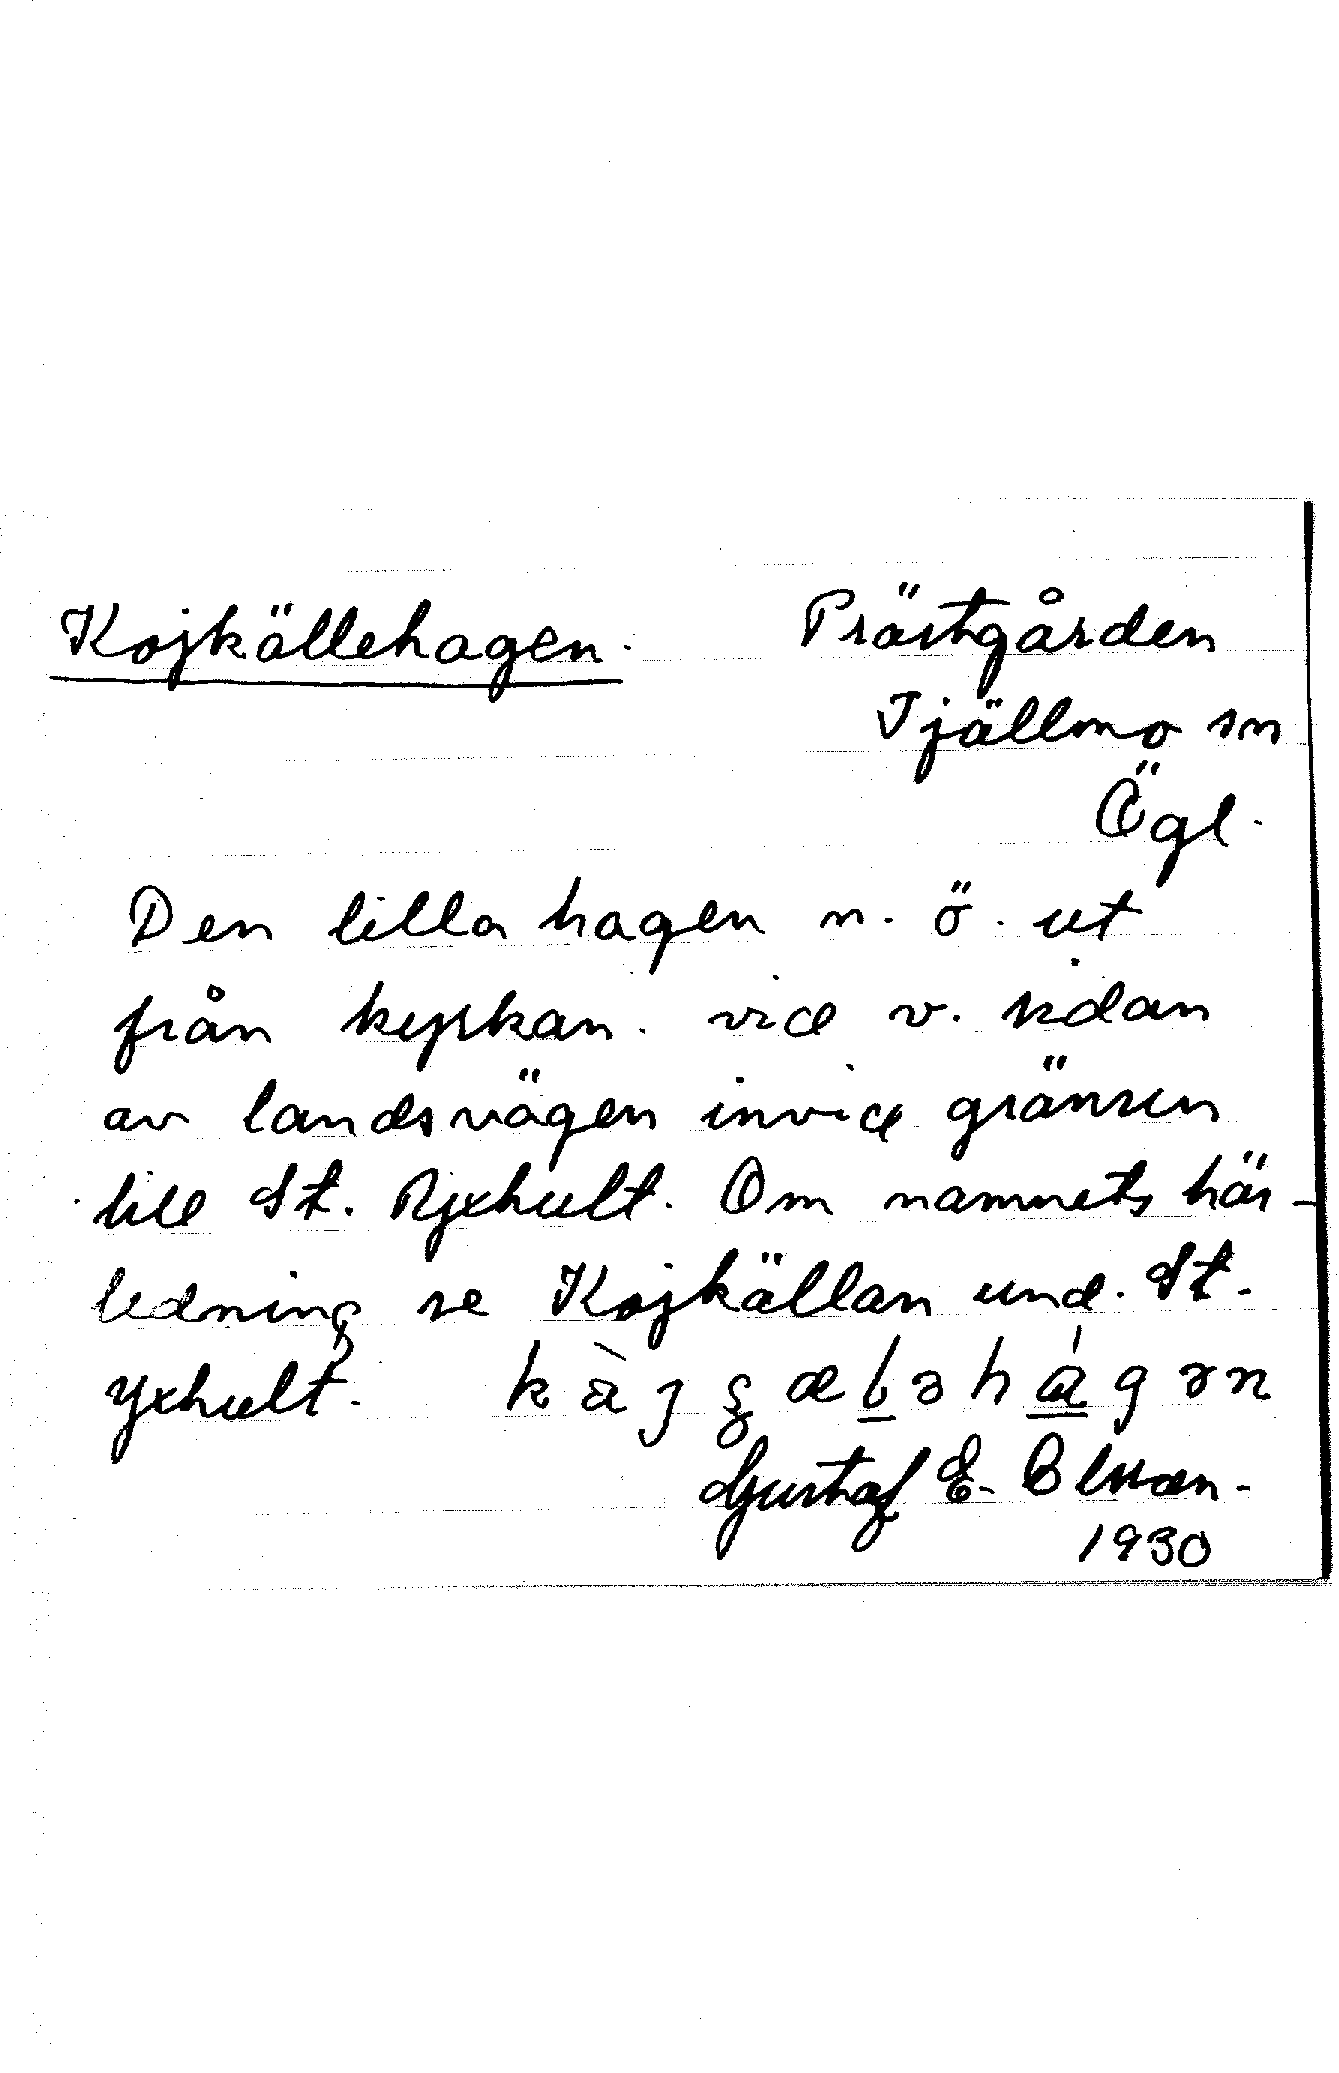 Kojkällehagen. Prästgården
Tjällmo sn
Ögl.
Den lilla hagen n. ö. ut
från kyrkan. vid v. sidan
av landsvägen invid gränsen
till St. Ryxhult. Om namnets här-
ledning se Kojkällan und. St.
Yxhult.
Gustaf E.
1930